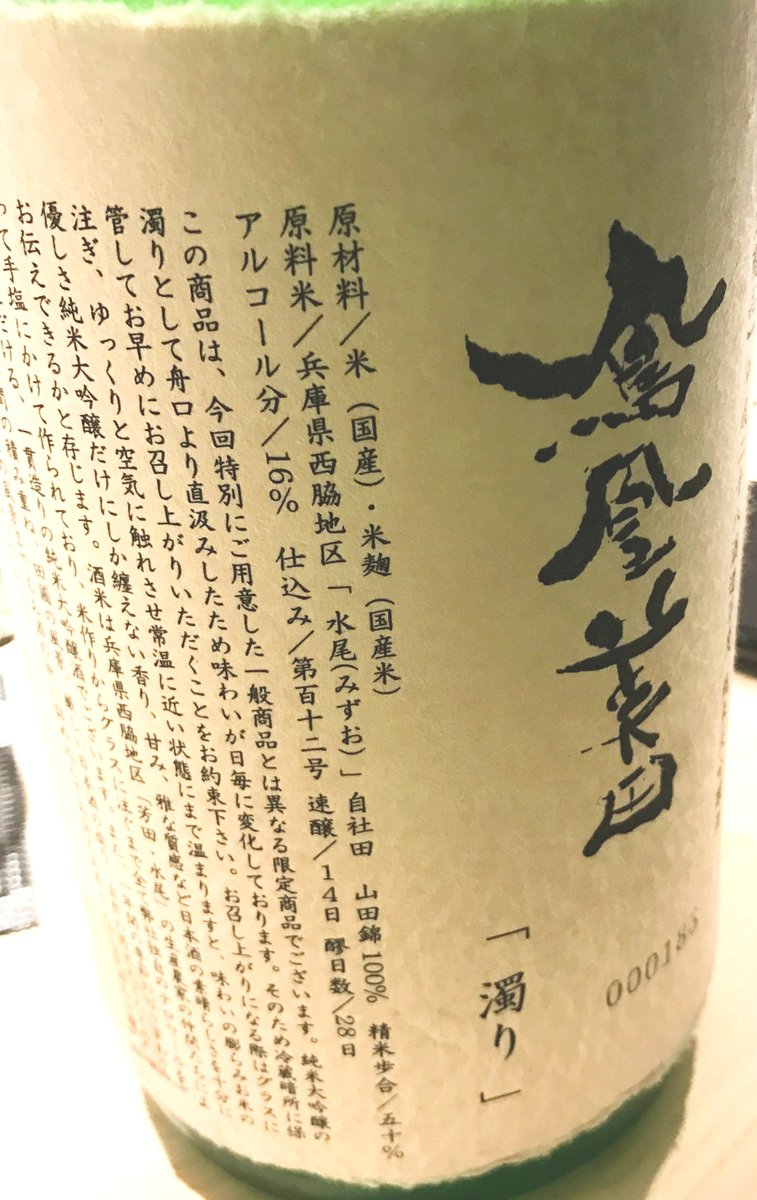 鳳凰美田
000185
「濁り」
原材料/米(国産)・米麹(国産米)
原料米/兵庫県西脇地区「水尾(みずお)」自社田 山田錦100% 精米歩合/五十%
アルコール分/16% 仕込み/第百十二号 速醸/14日 醪日数/28日
この商品は、今回特別にご用意した一般商品とは異なる限定商品でございます。純米大吟醸の
濁りとして舟口より直汲みしたため味わいが日毎に変化しております。そのため冷蔵暗所に保
管してお早めにお召し上がりいただくことをお約束下さい。お召し上がりになる際はグラスに
注ぎ、ゆっくりと空気に触れさせ常温に近い状態にまで温まりますと、味わいの膨らみお米の
優しさ純米大吟醸だけにしか纏えない香り、甘み、雅な質感など日本酒の素晴らしさを十分に
お伝えできるかと存じます。酒米は兵庫県西脇地区「芳田・水尾」の生産農家の仲間たちによ
って手塩にかけて作られており、米作りからグラスに注ぐまで全て
一貫造りの純米大吟醸酒でございます。